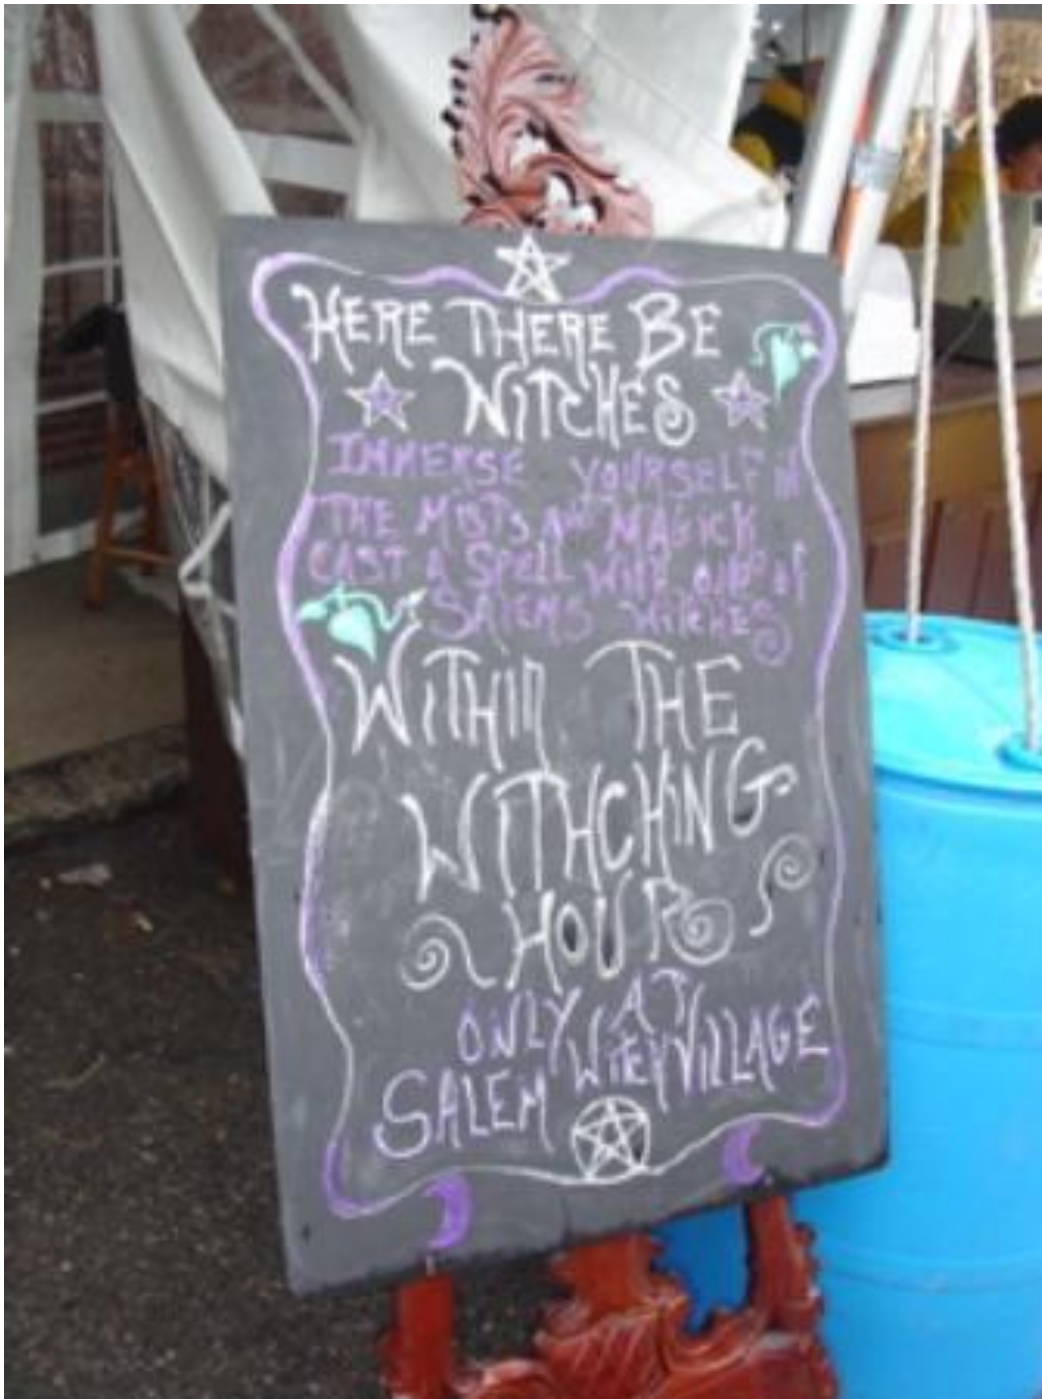 HERE THERE BE
WITCHES
IMMERSE YOURSELF IN
THE MISTS AND MAGICK
CAST A SPELL WITH ONE OF
SALEMS WITCHES
WITHIN THE
WITHCHING
HOUR
ONLY AT
SALEM WITCH VILLAGE